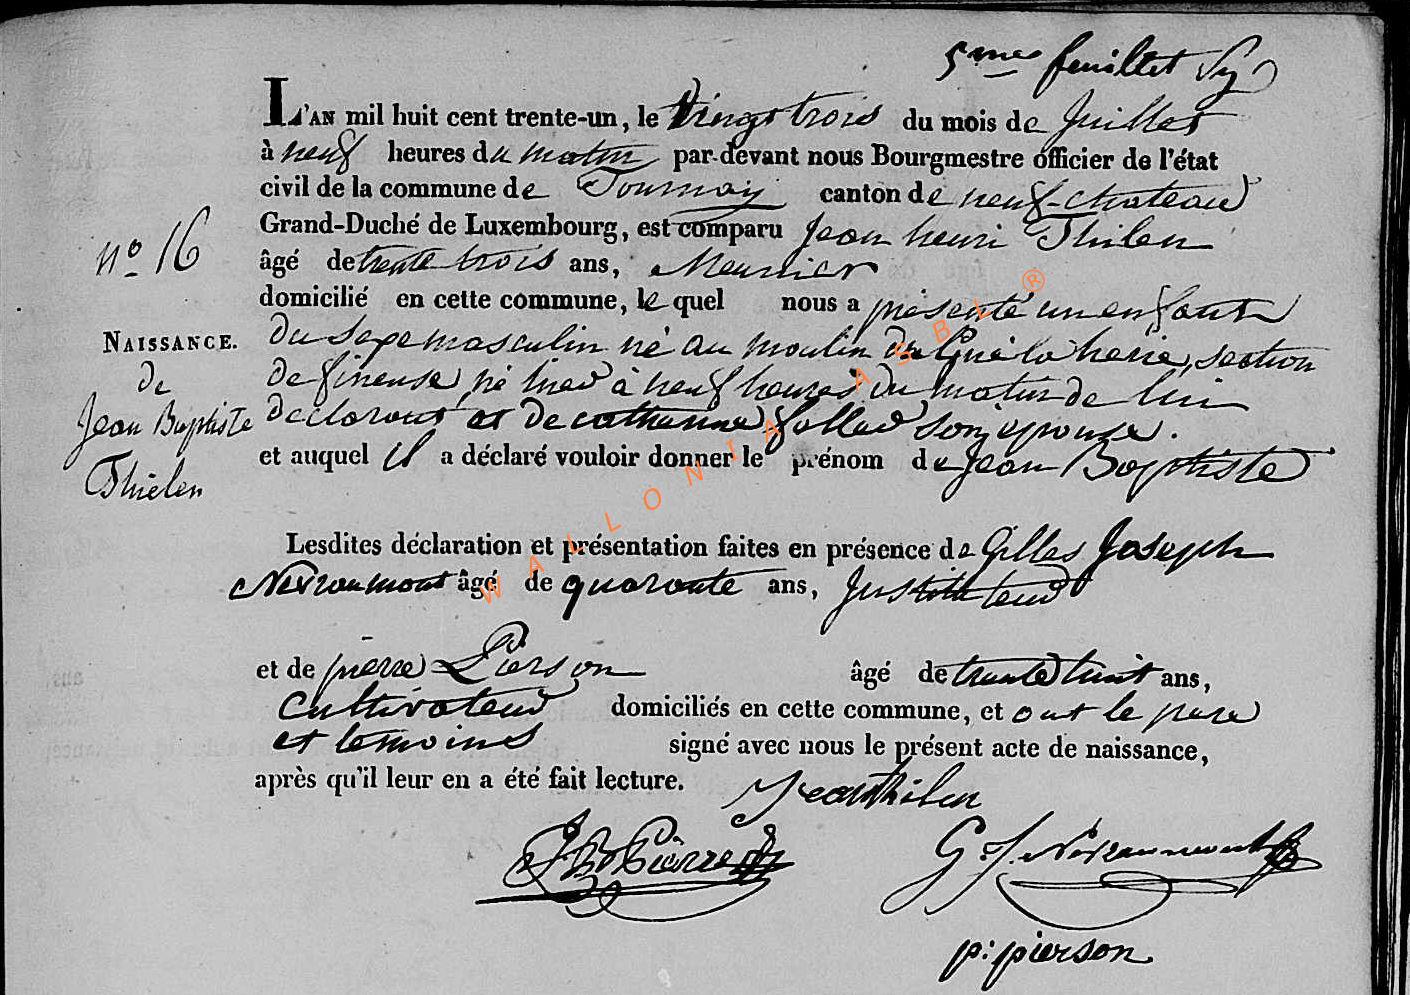 5me feuillet
L'AN mil huit cent trente-un, le vingt trois du mois de Juillet
à neuf heures du matin par-devant nous Bourgmestre officier de l'état
civil de la commune de Tournay canton de neuf-chateau
Grand-Duché de Luxembourg, est comparu Jean henri Thilen
âgé de trente trois ans, Meunier
domicilié en cette commune, le quel nous a présenté un enfant
du sexe masculin né au moulin de section
de fineuse, né hier à neuf heures du matin de lui
declarant et de catherine son epouse.
et auquel il a déclaré vouloir donner le prénom de Jean Baptiste
no 16
NAISSANCE.
de
Jean Baptiste
Thielen
Lesdites déclaration et présentation faites en présence de Gilles Joseph
Nexroumont âgé de quarante ans, Instituteur
et de pierre Pierson âgé de trente huit ans,
cultivateur domiciliés en cette commune, et ont le pere
et temoins signé avec nous le présent acte de naissance,
après qu'il leur en a été fait lecture.
Jean thilen
J B Pierret
G. J. Nexroumont
p: pierson
WALLONIA ASBL ®